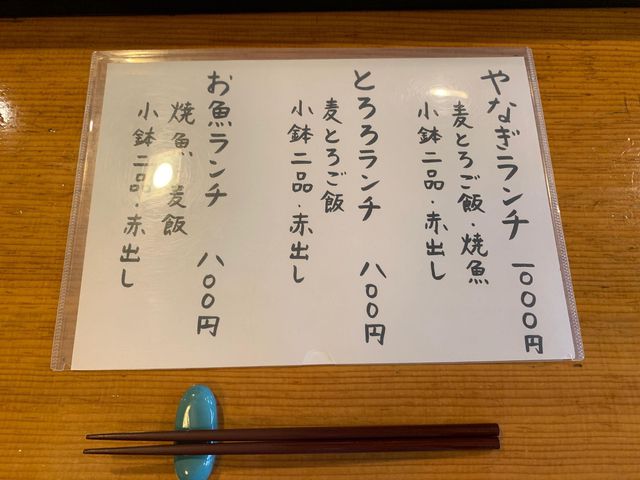 やなぎランチ 一〇〇〇円
麦とろご飯・焼魚
小鉢二品・赤出し
とろろランチ 八〇〇円
麦とろご飯
小鉢二品・赤出し
お魚ランチ 八〇〇円
焼魚 麦飯
小鉢二品・赤出し